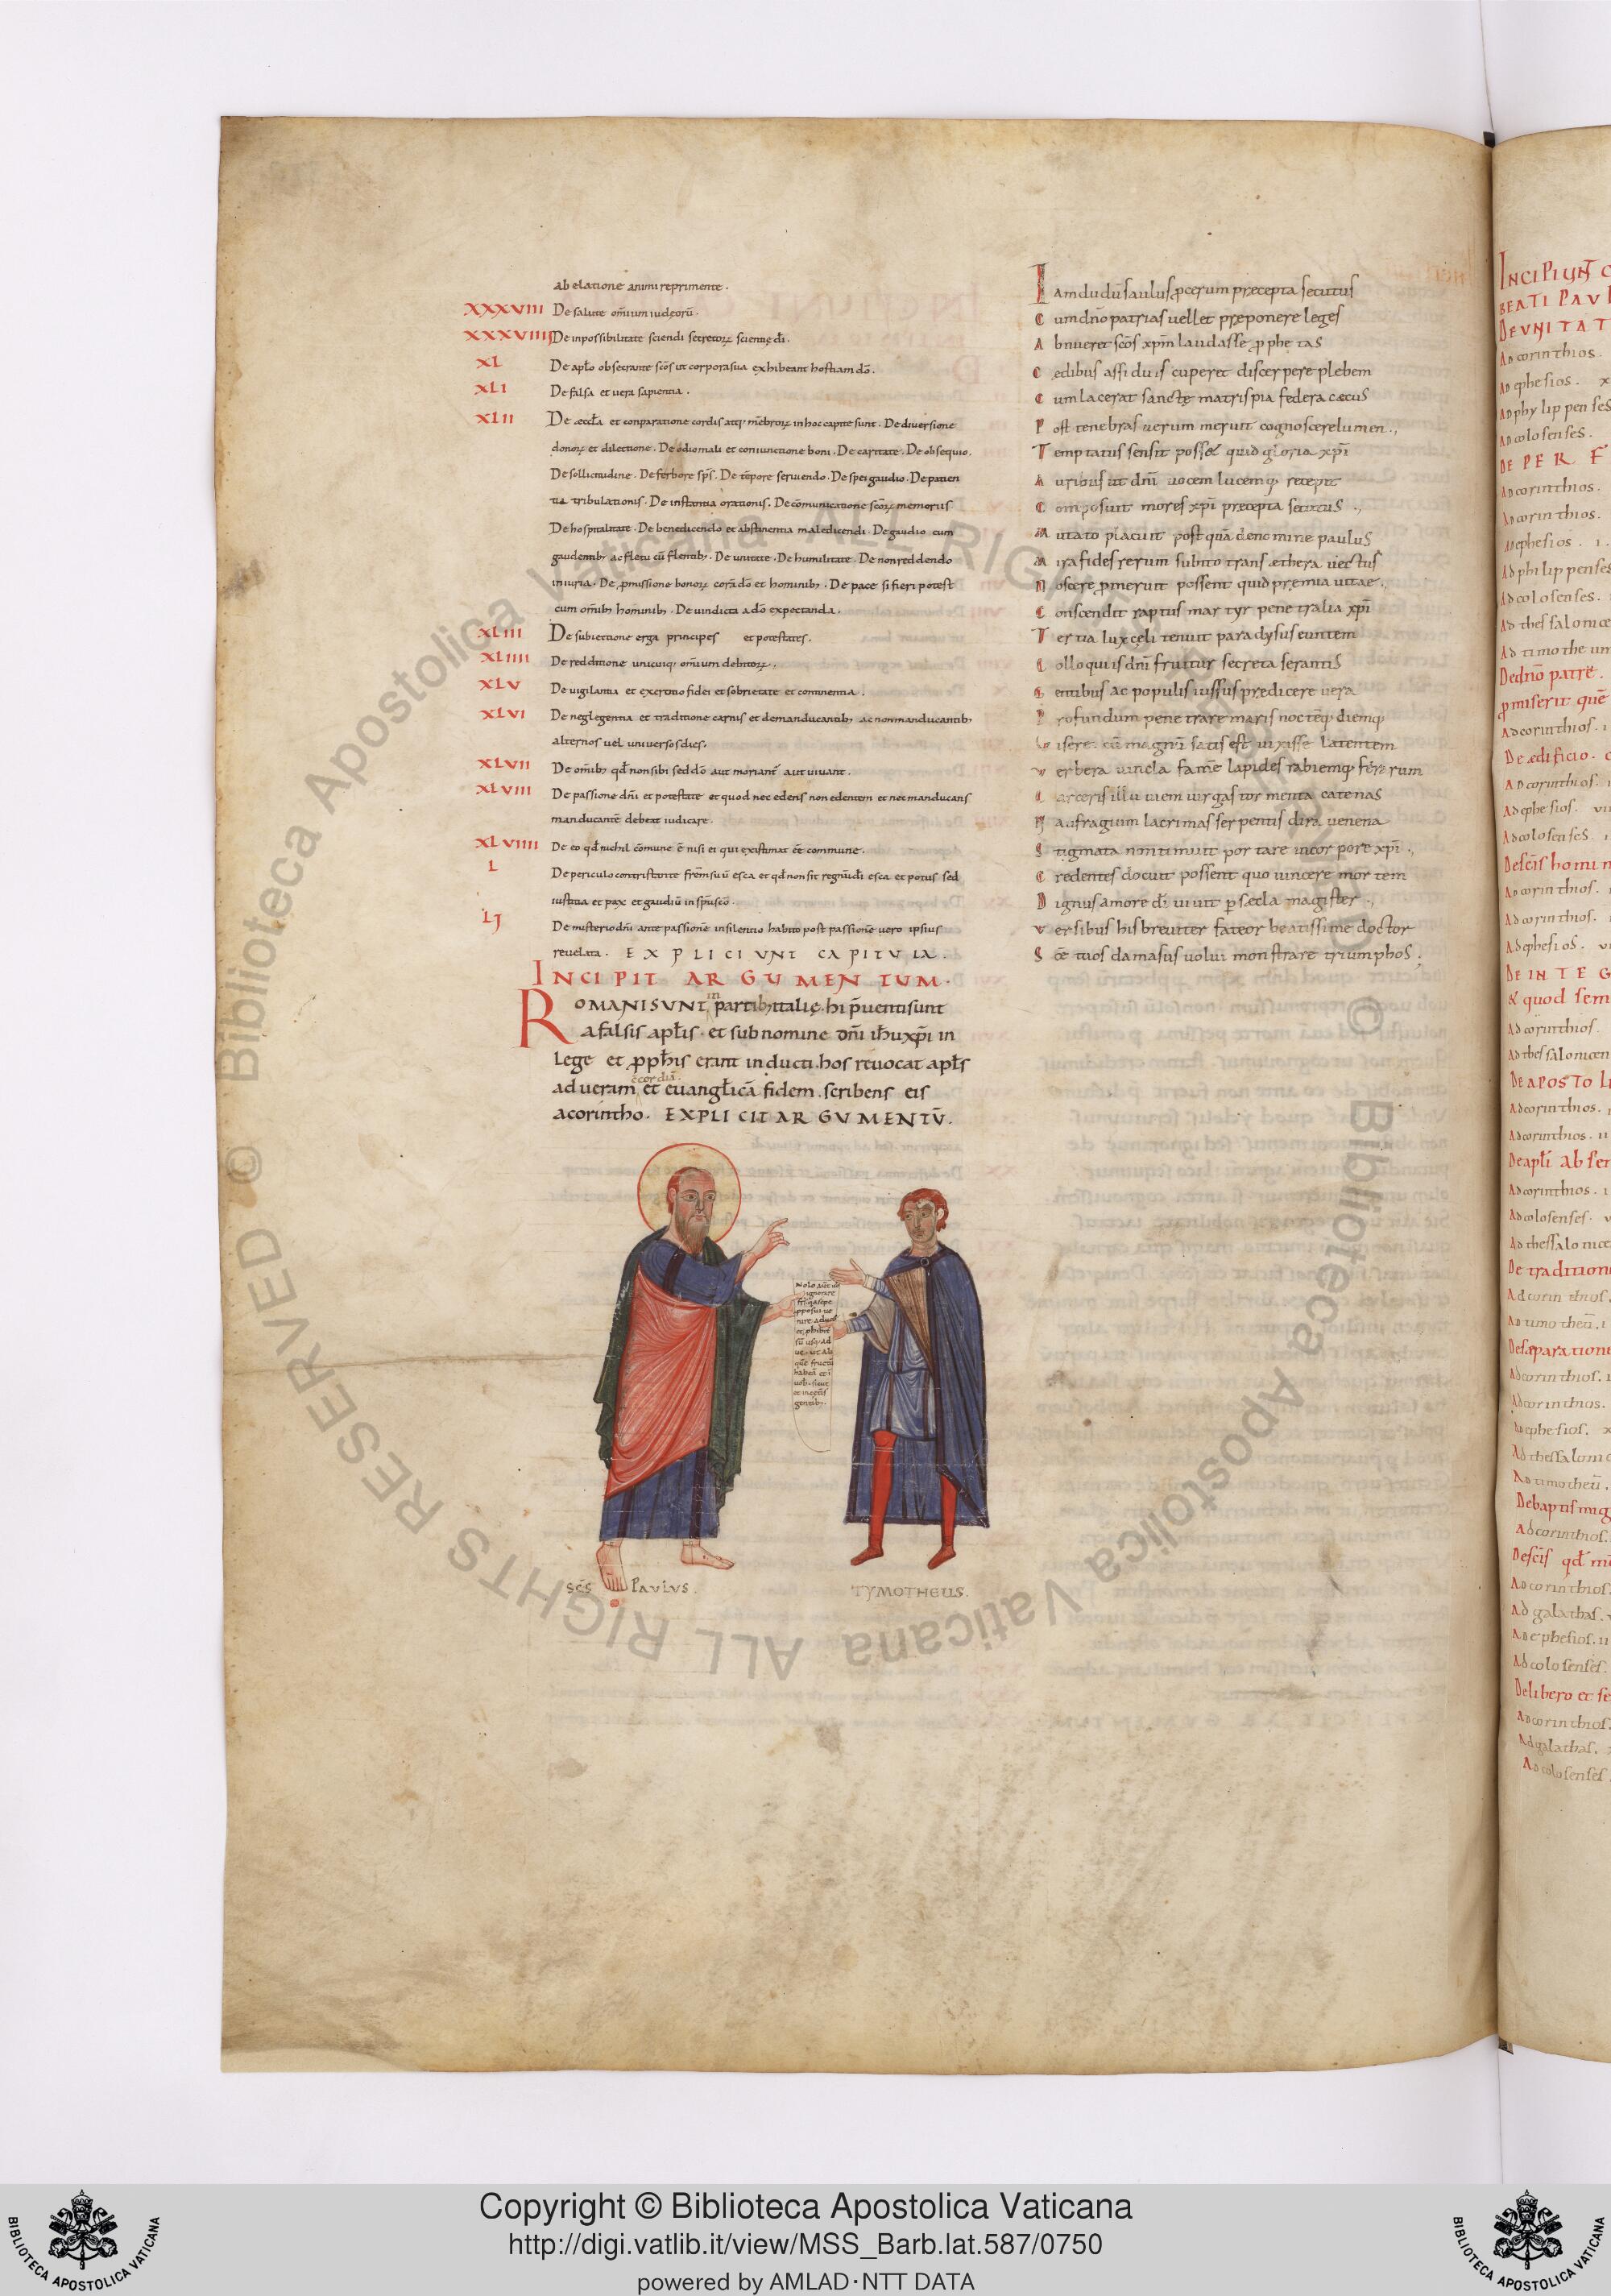 ab elatione animi reprimente.
XXXVIII De salute om̄ium iudeorū.
XXXVIIII De inpossibilitate sciendi secretorꝝ scientię dī.
XL De apl̄o obsecrante sc̄os ut corpora sua exhibeant hostiam dō.
XLI De falsa et vera sapientia.
XLII De æccl̄a et conparatione cordis atq; mēbrorꝝ in hoc capite sunt. De diversione
donorꝝ et dilectione. De odio mali et coniunctione boni. De caritate. De obsequio.
De sollicitudine. De ferbore sp̄s. De tēpore serviendo. De spei gaudio. De patien
tia tribulationis. De instantia orationis. De cōmunicatione sc̄orꝝ memoriis
De hospitalitate. De benedicendo et abstinentia maledicendi. De gaudio cum
gaudentib; ac fletu cū flentib;. De unitate. De humilitate. De non reddendo
iniuria. De ꝓmissione bonorꝝ corā dō et hominib;. De pace si fieri potest
cum om̄ib; hominib;. De vindicta a dō expectanda.
XLIII De subiectione erga principes et potestates.
XLIIII De redditione unicuiq; om̄ium debitorꝝ.
XLV De vigilantia et exercitio fidei et sobrietate et continentia.
XLVI De neglegentia et traditione carnis et de manducantib; ac non manducantib;
alternos vel universos dies.
XLVII De om̄ib; qđ non sibi sed dō aut moriant̄ aut vivant.
XLVIII De passione dn̄i et potestate et quod nec edens non edentem et nec manducans
manducantē debeat iudicare.
XLVIIII De eo qđ nichil cōmune ē nisi ei qui existimat ēē commune.
L De periculo contristante fr̄em suū esca et qđ non sit regnū dī esca et potus sed
iustitia et pax et gaudiū in sp̄u sc̄o.
LI De misterio dn̄i ante passionē in silentio habito post passionē vero ipsius
revelata. EXPLICIUNT CAPITULA.
INCIPIT ARGUMENTUM.
ROMANI SUNT in partib; italię. hi p̄venti sunt
a falsis apl̄is. et sub nomine dn̄i ih̄u xp̄i in
lege et ꝓph̄is erant inducti. hos revocat apl̄s
ad veram et euangl̄icā fidem. scribens eis
a corintho. EXPLICIT ARGUMENTŪ.
Nolo aut̄ vos
ignorare
fr̄s q̄a sepe
pposui ve
nire ad vos
et phibit'
sū usq; ad
uc. ut ali
quē fructū
habeā et ī
vob. sicut
et in cet̄is
gentib;.
SC̄S PAULUS.
TYMOTHEUS.
Iamdudū saulus ꝓcerum precepta secutus
Cum dn̄o patrias vellet preponere leges
Abnueret sc̄os xp̄m laudasse ꝓphetas
Cedibus assiduis cuperet discerpere plebem
Cum lacerat sanctę matris pia federa cæcus
Post tenebras verum meruit cognoscere lumen.,
Temptatus sensit posset quid gloria xp̄i
Auribus ut dn̄i vocem lucemq; recepit
Composuit mores xp̄i precepta secutus.,
Mutato placuit postquā de nomine paulus
Mira fides rerum subito trans æthera vectus
Noscere ꝓmeruit possent quid premia vitae.
Conscendit raptus martyr penetralia xp̄i
Tertia lux cęli tenuit paradysus euntem
Colloquiis dn̄i fruitur secreta serantis
Gentibus ac populis iussus predicere vera
Profundum penetrare maris noctēq; diemq;
Visere. cū magnū satis est vixisse latentem
Verbera vincla famē lapides rabiemq; ferarum
Carceris illuviem virgas tormenta catenas
Naufragium lacrimas serpentis dira venena
Stigmata non timuit portare in corpore xp̄i.,
Credentes docuit possent quo vincere mortem
Dignus amore dī vivit p sæcla magister.,
Versibus his breviter fateor beatissime doctor
Sc̄e tuos damasus volui monstrare triumphos.
INCIPIUNT C
BEATI PAUL
DE UNITAT
Ad corinthios.
Ad ephesios. x
Ad phylippenses
Ad colosenses.
DE PERF
Ad corinthios.
Ad corinthios.
Ad ephesios. i.
Ad philippenses
Ad colosenses.
Ad thessalonice
Ad timotheum
De dn̄o patre.
ꝓmiserit quē
Ad corinthios. i
De ædificio.
Ad corinthios.
Ad ephesios. vii
Ad colosenses. i
De sc̄is homin
Ad corinthios.
Ad corinthios.
Ad ephesios. v
DE INTEG
et quod sem
Ad corinthios.
Ad thessalonicen
DE APOSTOL
Ad corinthios.
Ad corinthios. ii
De apl̄i absen
Ad corinthios. i
Ad colosenses. v
Ad thessalonice
De traditione
Ad corinthios.
Ad timotheū. i
De separatione
Ad corinthios.
Ad corinthios.
Ad ephesios. x
Ad thessalonic
Ad timotheū.
De baptismi g
Ad corinthios.
De sc̄is qđ m
Ad corinthios.
Ad galathas.
Ad ephesios. ii
Ad colosenses.
De libero et se
Ad corinthios.
Ad galathas.
Ad colosenses
© Biblioteca Apostolica Vaticana ALL RIGHTS RESERVED
Copyright © Biblioteca Apostolica Vaticana
http://digi.vatlib.it/view/MSS_Barb.lat.587/0750
powered by AMLAD·NTT DATA
BIBLIOTECA APOSTOLICA VATICANA
BIBLIOTECA APOSTOLICA VATICANA